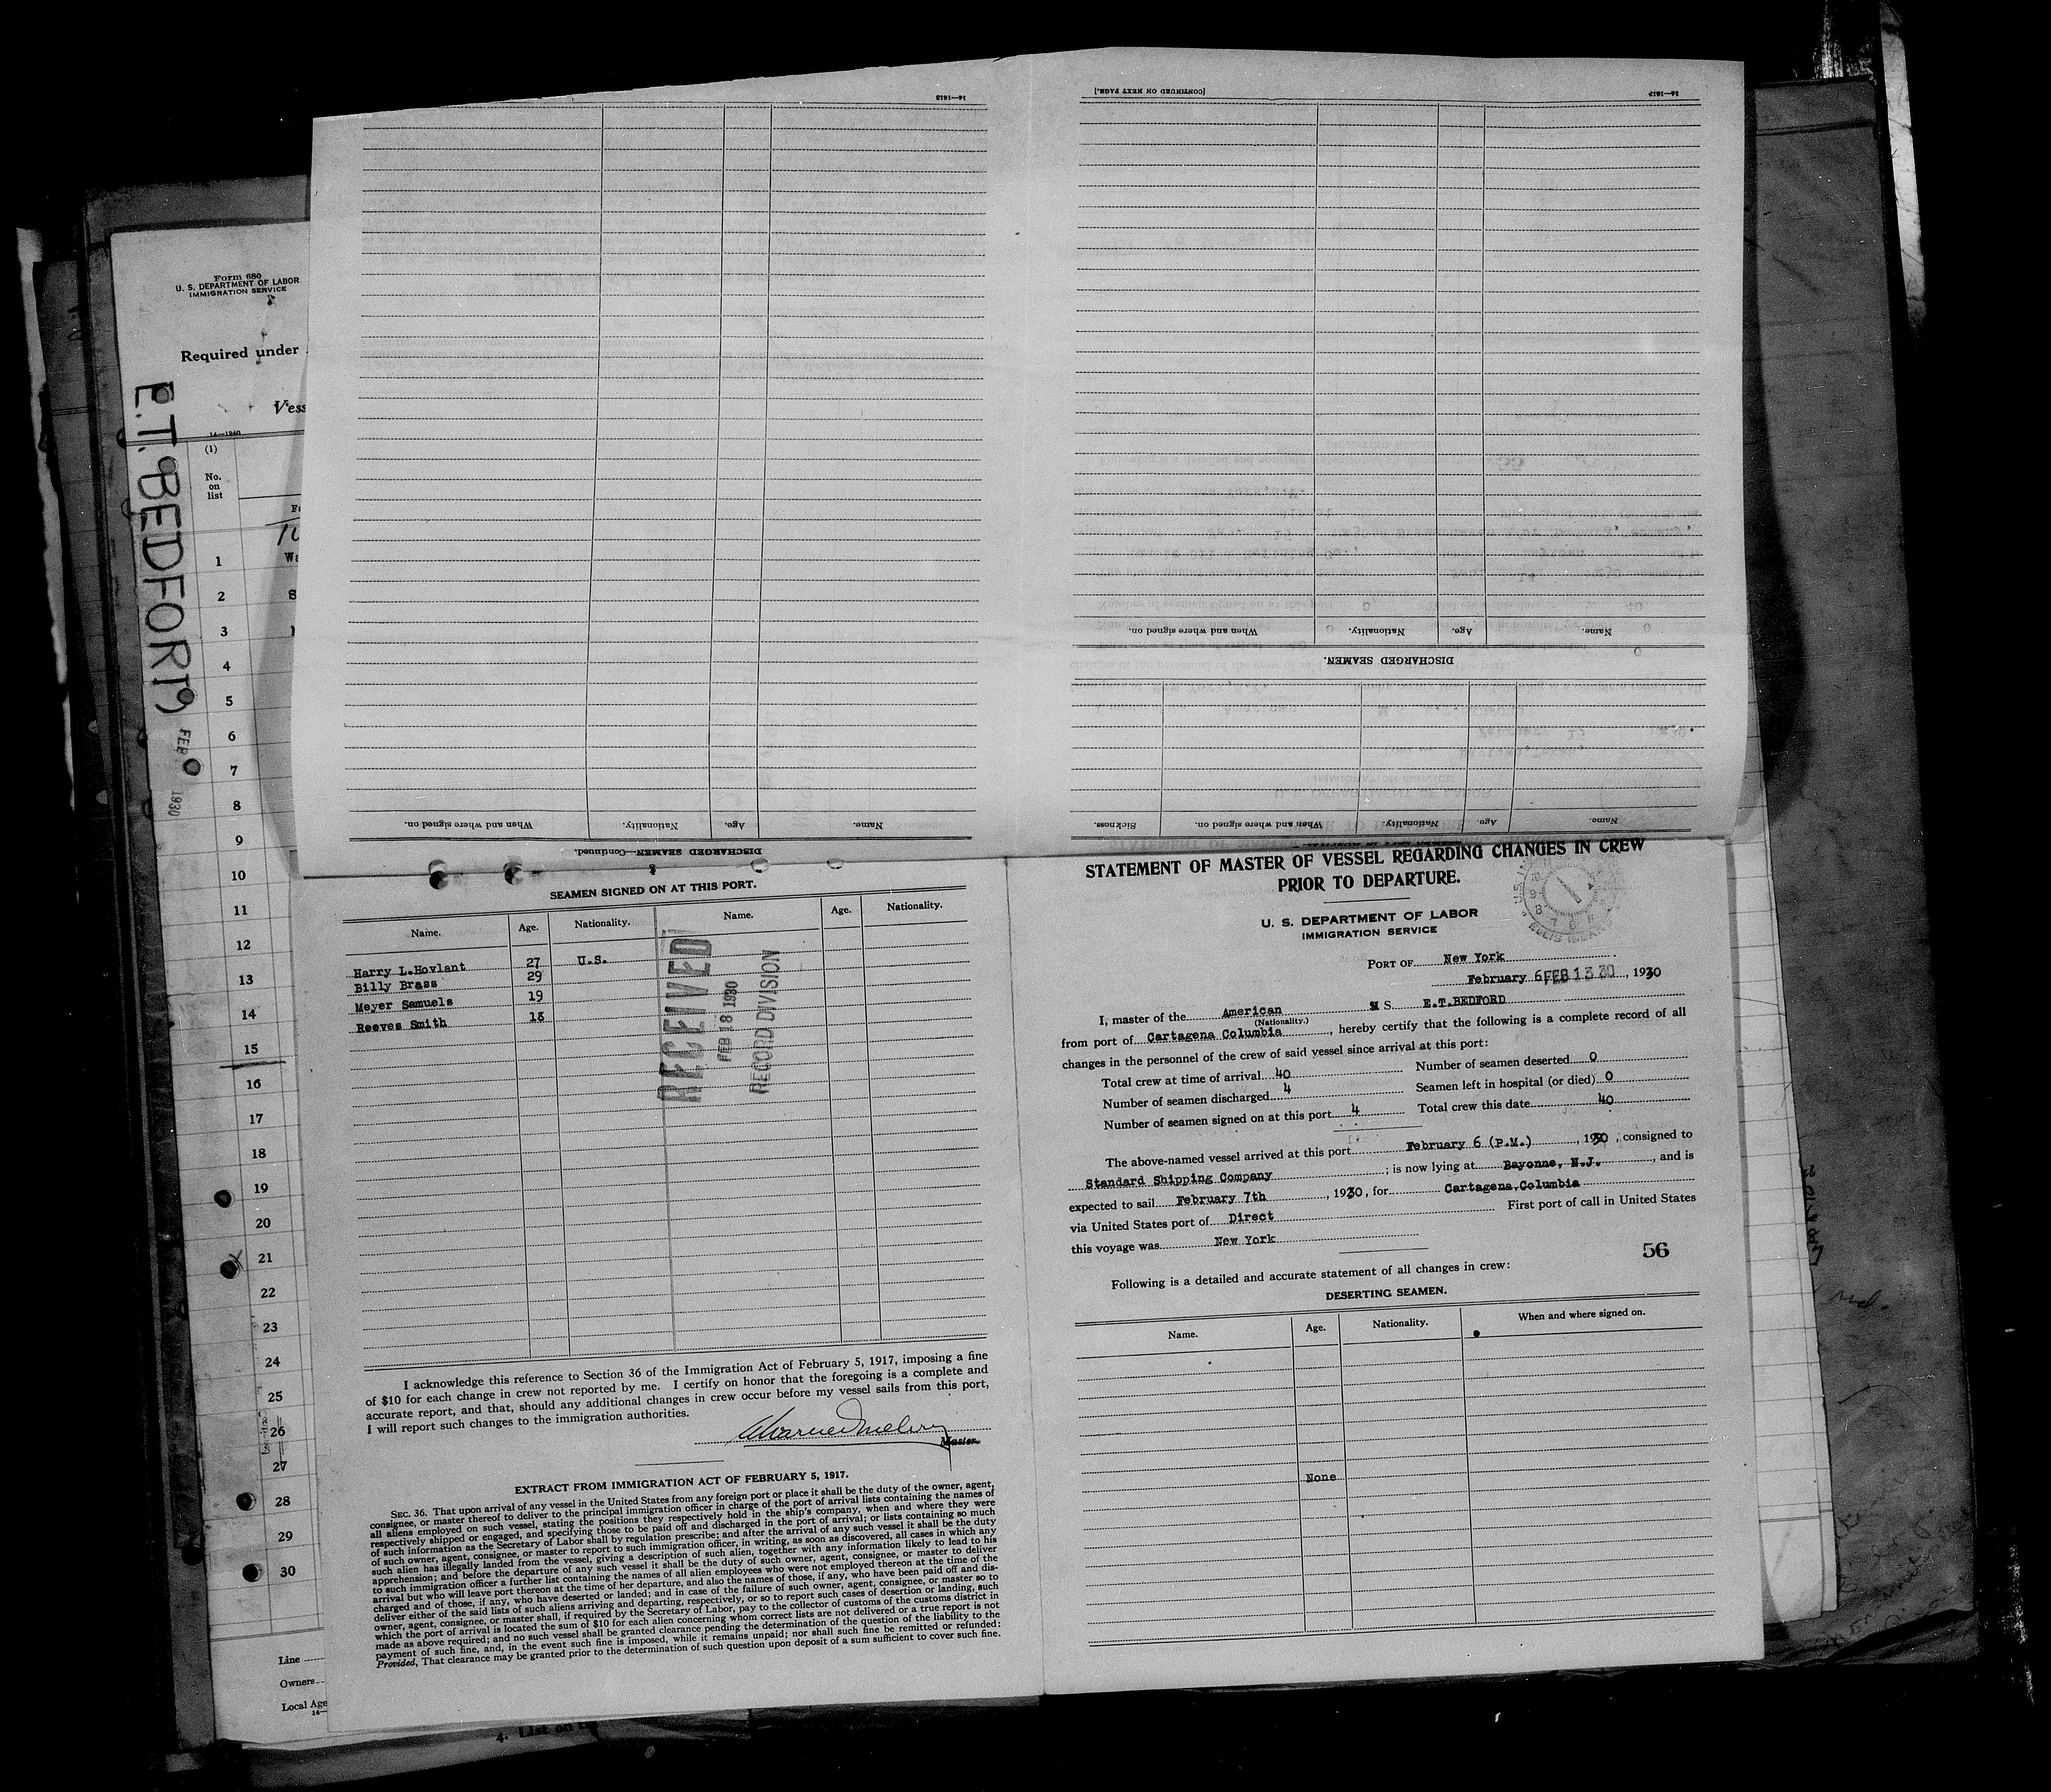 Form 680
U. S. DEPARTMENT OF LABOR
IMMIGRATION SERVICE
Required under
Vess
14—1240
(1)
No.
on
list
E.T. BEDFORD
FEB
1930
1
2
3
4
5
6
7
8
9
10
11
12
13
14
15
16
17
18
19
20
21
22
23
24
25
26
27
28
29
30
Line
Owners
Local Age
14—
4. List on
14—1613
[CONTINUED ON NEXT PAGE.]
Name. Age. Nationality. When and where signed on.
DISCHARGED SEAMEN.
Name. Age. Nationality. When and where signed on. Sickness.
Name. Age. Nationality. When and where signed on.
DISCHARGED SEAMEN—Continued.
SEAMEN SIGNED ON AT THIS PORT.
Name. Age. Nationality. Name. Age. Nationality.
Harry L.Hovlant 27 U.S.
Billy Brass 29
Meyer Samuels 19
Reeves Smith 18
RECEIVED
FEB 18 1930
RECORD DIVISION
I acknowledge this reference to Section 36 of the Immigration Act of February 5, 1917, imposing a fine
of $10 for each change in crew not reported by me. I certify on honor that the foregoing is a complete and
accurate report, and that, should any additional changes in crew occur before my vessel sails from this port,
I will report such changes to the immigration authorities.
Master.
EXTRACT FROM IMMIGRATION ACT OF FEBRUARY 5, 1917.
SEC. 36. That upon arrival of any vessel in the United States from any foreign port or place it shall be the duty of the owner, agent,
consignee, or master thereof to deliver to the principal immigration officer in charge of the port of arrival lists containing the names of
all aliens employed on such vessel, stating the positions they respectively hold in the ship's company, when and where they were
respectively shipped or engaged, and specifying those to be paid off and discharged in the port of arrival; or lists containing so much
of such information as the Secretary of Labor shall by regulation prescribe; and after the arrival of any such vessel it shall be the duty
of such owner, agent, consignee, or master to report to such immigration officer, in writing, as soon as discovered, all cases in which any
such alien has illegally landed from the vessel, giving a description of such alien, together with any information likely to lead to his
apprehension; and before the departure of any such vessel it shall be the duty of such owner, agent, consignee, or master to deliver
to such immigration officer a further list containing the names of all alien employees who were not employed thereon at the time of the
arrival but who will leave port thereon at the time of her departure, and also the names of those, if any, who have been paid off and dis-
charged and of those, if any, who have deserted or landed; and in case of the failure of such owner, agent, consignee, or master so to
deliver either of the said lists of such aliens arriving and departing, respectively, or so to report such cases of desertion or landing, such
owner, agent, consignee, or master shall, if required by the Secretary of Labor, pay to the collector of customs of the customs district in
which the port of arrival is located the sum of $10 for each alien concerning whom correct lists are not delivered or a true report is not
made as above required; and no such vessel shall be granted clearance pending the determination of the question of the liability to the
payment of such fine, and, in the event such fine is imposed, while it remains unpaid; nor shall such fine be remitted or refunded:
Provided, That clearance may be granted prior to the determination of such question upon deposit of a sum sufficient to cover such fine.
STATEMENT OF MASTER OF VESSEL REGARDING CHANGES IN CREW
PRIOR TO DEPARTURE.
U. S. DEPARTMENT OF LABOR
IMMIGRATION SERVICE
ELLIS ISLAND
PORT OF New York
February 6 FEB 13 30, 1930
I, master of the American M S E.T.BEDFORD
(Nationality.)
from port of Cartagena Columbia, hereby certify that the following is a complete record of all
changes in the personnel of the crew of said vessel since arrival at this port:
Total crew at time of arrival 40 Number of seamen deserted 0
Number of seamen discharged 4 Seamen left in hospital (or died) 0
Number of seamen signed on at this port 4 Total crew this date 40
The above-named vessel arrived at this port February 6 (P.M.), 1930, consigned to
Standard Shipping Company; is now lying at Bayonne, N.J., and is
expected to sail February 7th, 1930, for Cartagena,Columbia
via United States port of Direct First port of call in United States
this voyage was New York
56
Following is a detailed and accurate statement of all changes in crew:
DESERTING SEAMEN.
Name. Age. Nationality. When and where signed on.
None